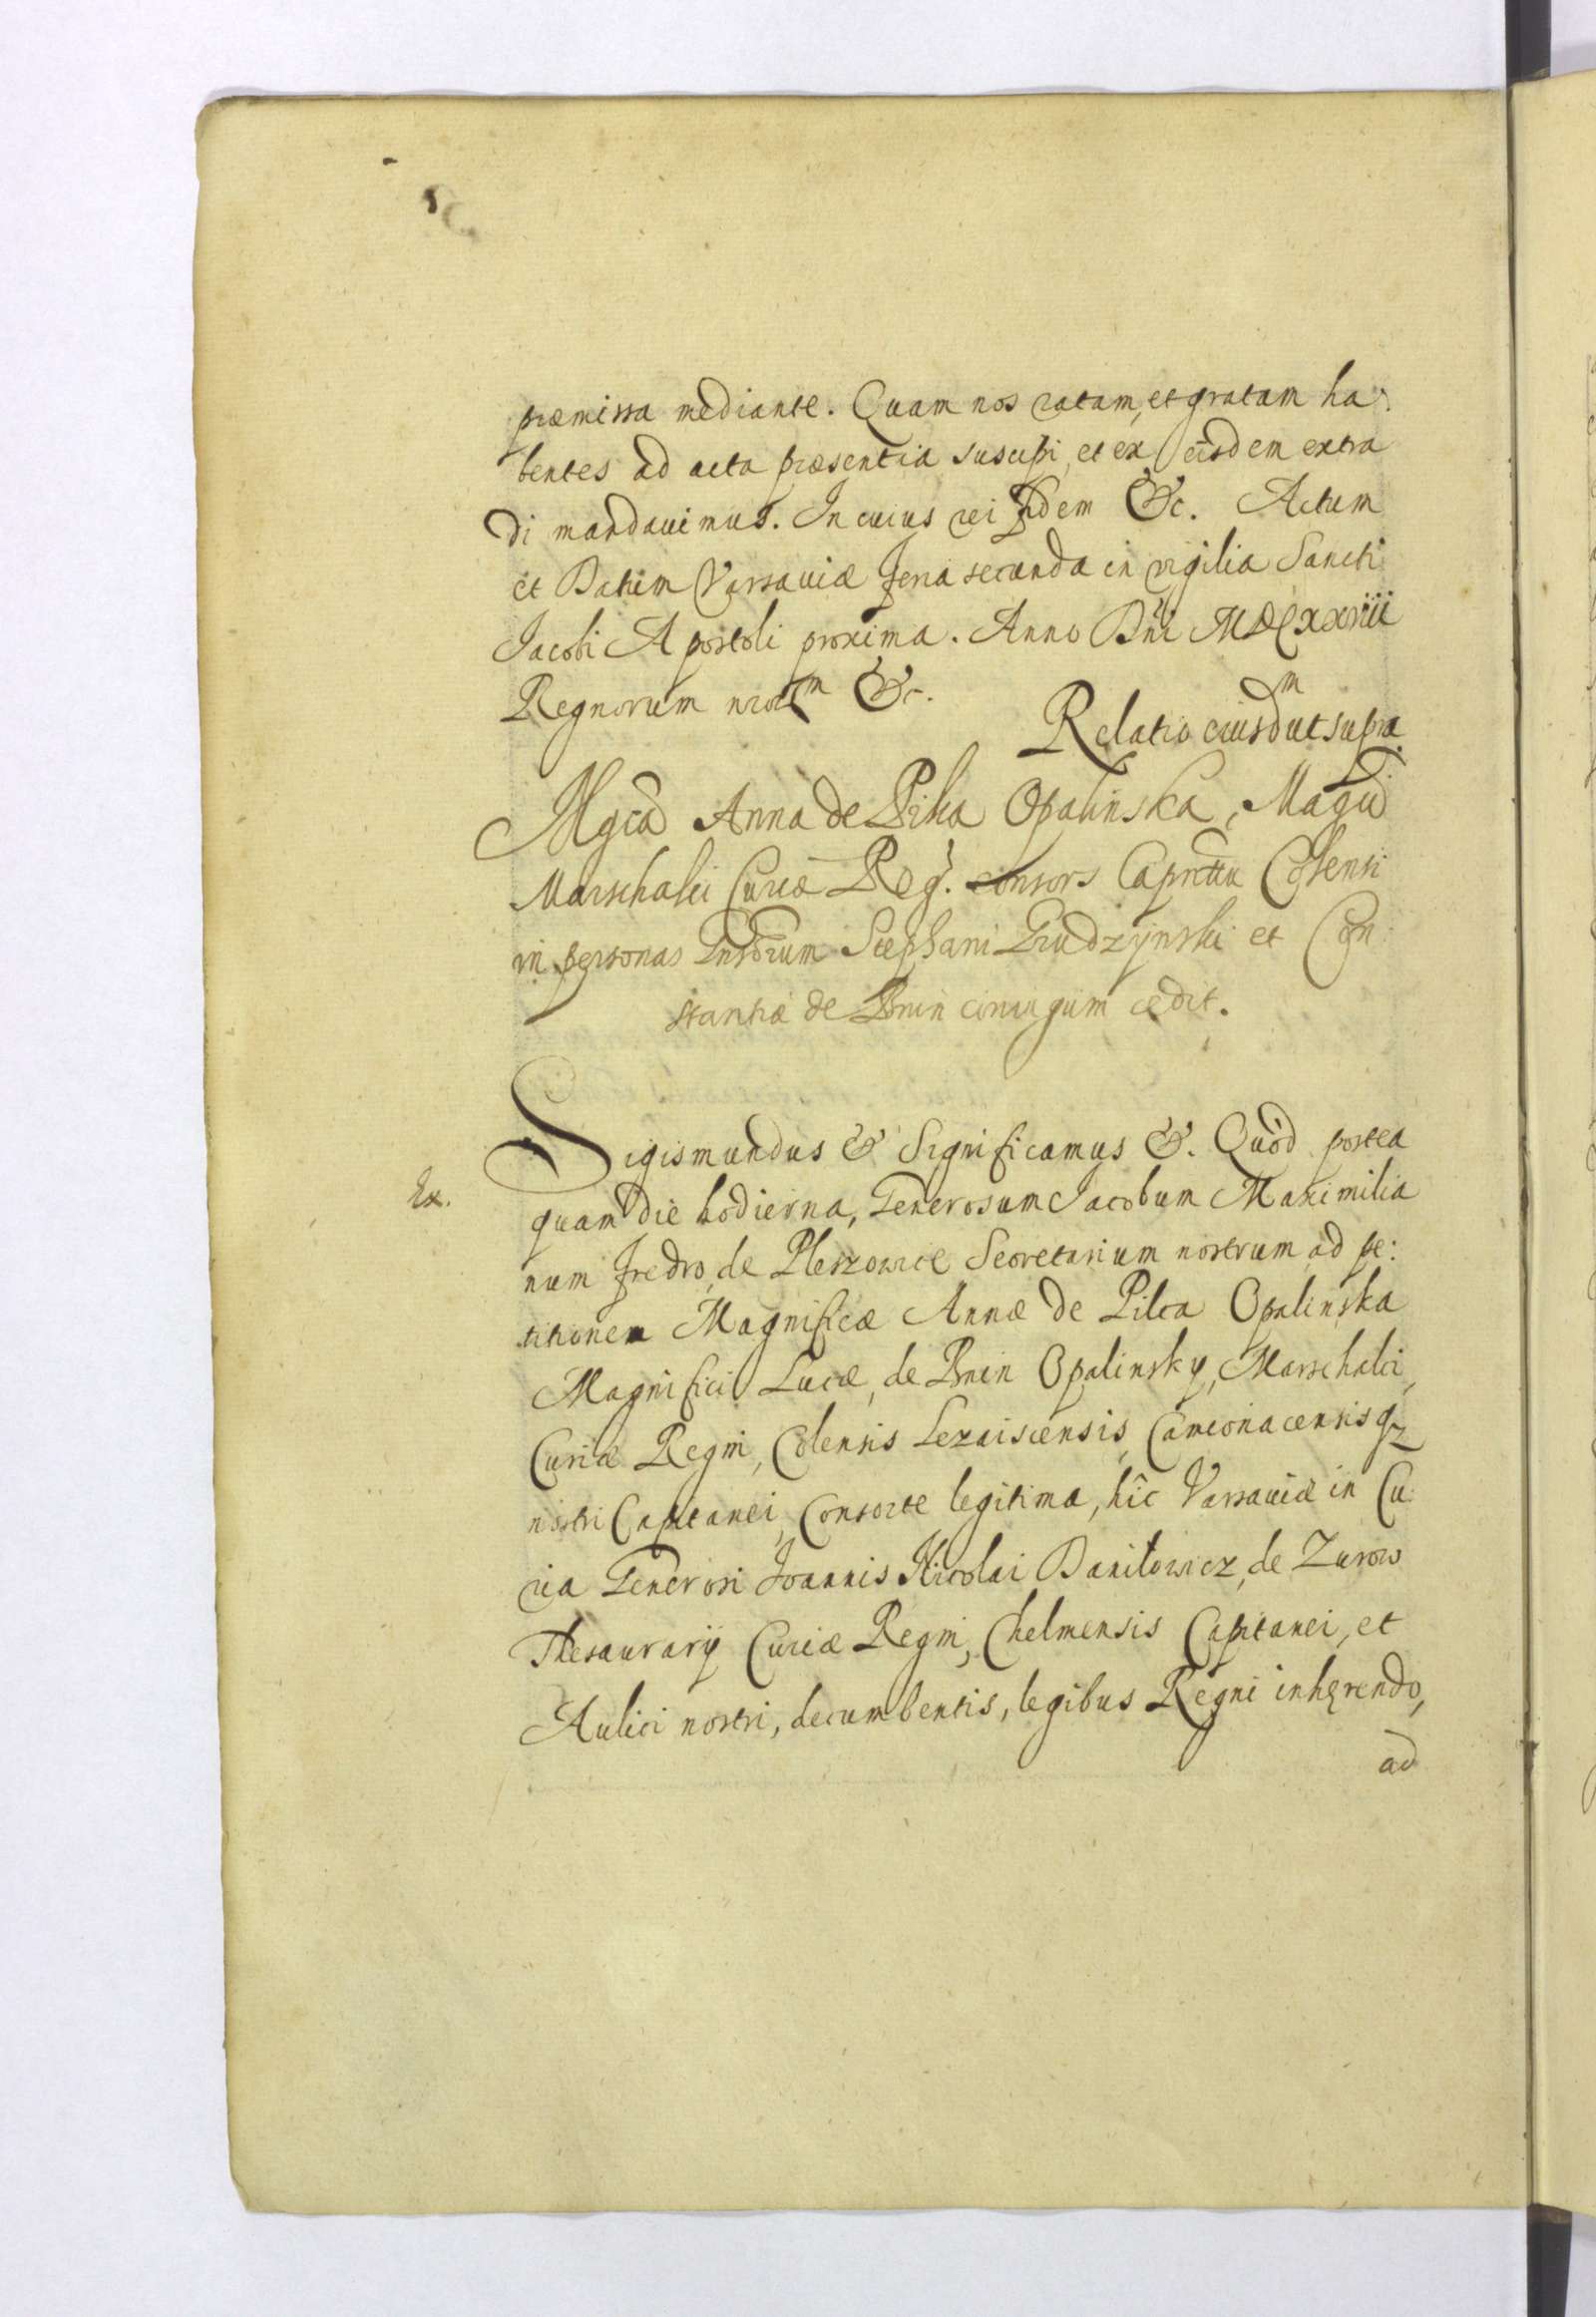 præmissa mediante. Quam nos ratam, et gratam ha:
bentes ad acta præsentia suscipi, et ex eisdem extra
di mandavimus. In cuius rei fidem &c. Actum
et Datum Varsaviæ feria secunda in vigilia Sancti
Jacobi Apostoli proxima. Anno Dni MDCXXVIII
Regnorum nror &c.
Relatio eiusdm ut supra
Mgca Anna de Pilca Opalinska, Magci
Marschalci Curiæ Reg. consors Capneatu Colensi
in personas Gnsorum Stephani Grudzynski et Con:
stantiæ de Bnin coniugum cedit.
Sigismundus & Significamus &. Quòd postea
Ex.
quam die hodierna, Generosum Jacobum Maximilia
num Fredro, de Pleszowice Secretarium nostrum, ad pe:
titionem Magnificæ Annæ de Pilca Opalinska
Magnifici Lucæ, de Bnin Opalinsky, Marschalci,
Curiæ Regni, Colensis Lezaiscensis, Camionacensis qz
nostri Capitanei, Consorte legitima, hîc Varsaviæ in Cu:
ria Generosi Joannis Nicolai Daniłowicz, de Zurow
Thesaurarij Curiæ Regni, Chelmensis Capitanei, et
Aulici nostri, decumbentis, legibus Regni inhęrendo,
ad